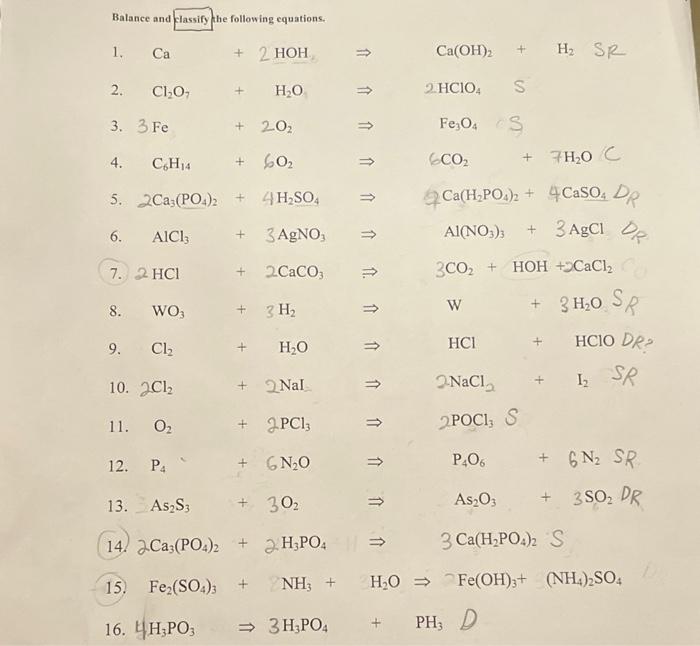 Balance and classify the following equations.
1. Ca + 2 HOH ⇒ Ca(OH)₂ + H₂ SR
2. Cl₂O₇ + H₂O ⇒ 2 HClO₄ S
3. 3 Fe + 2O₂ ⇒ Fe₃O₄ S
4. C₆H₁₄ + 6O₂ ⇒ 6CO₂ + 7H₂O C
5. 2Ca₃(PO₄)₂ + 4H₂SO₄ ⇒ 2Ca(H₂PO₄)₂ + 4CaSO₄ DR
6. AlCl₃ + 3 AgNO₃ ⇒ Al(NO₃)₃ + 3 AgCl DR
7. 2 HCl + 2CaCO₃ ⇒ 3CO₂ + HOH + 2CaCl₂
8. WO₃ + 3 H₂ ⇒ W + 3 H₂O SR
9. Cl₂ + H₂O ⇒ HCl + HClO DR?
10. 2Cl₂ + 2NaI ⇒ 2NaCl₂ + I₂ SR
11. O₂ + 2PCl₃ ⇒ 2POCl₃ S
12. P₄ + 6N₂O ⇒ P₄O₆ + 6N₂ SR
13. As₂S₃ + 3O₂ ⇒ As₂O₃ + 3SO₂ DR
14. 2Ca₃(PO₄)₂ + 2H₃PO₄ ⇒ 3Ca(H₂PO₄)₂ S
15. Fe₂(SO₄)₃ + NH₃ + H₂O ⇒ Fe(OH)₃ + (NH₄)₂SO₄
16. 4H₃PO₃ ⇒ 3H₃PO₄ + PH₃ D